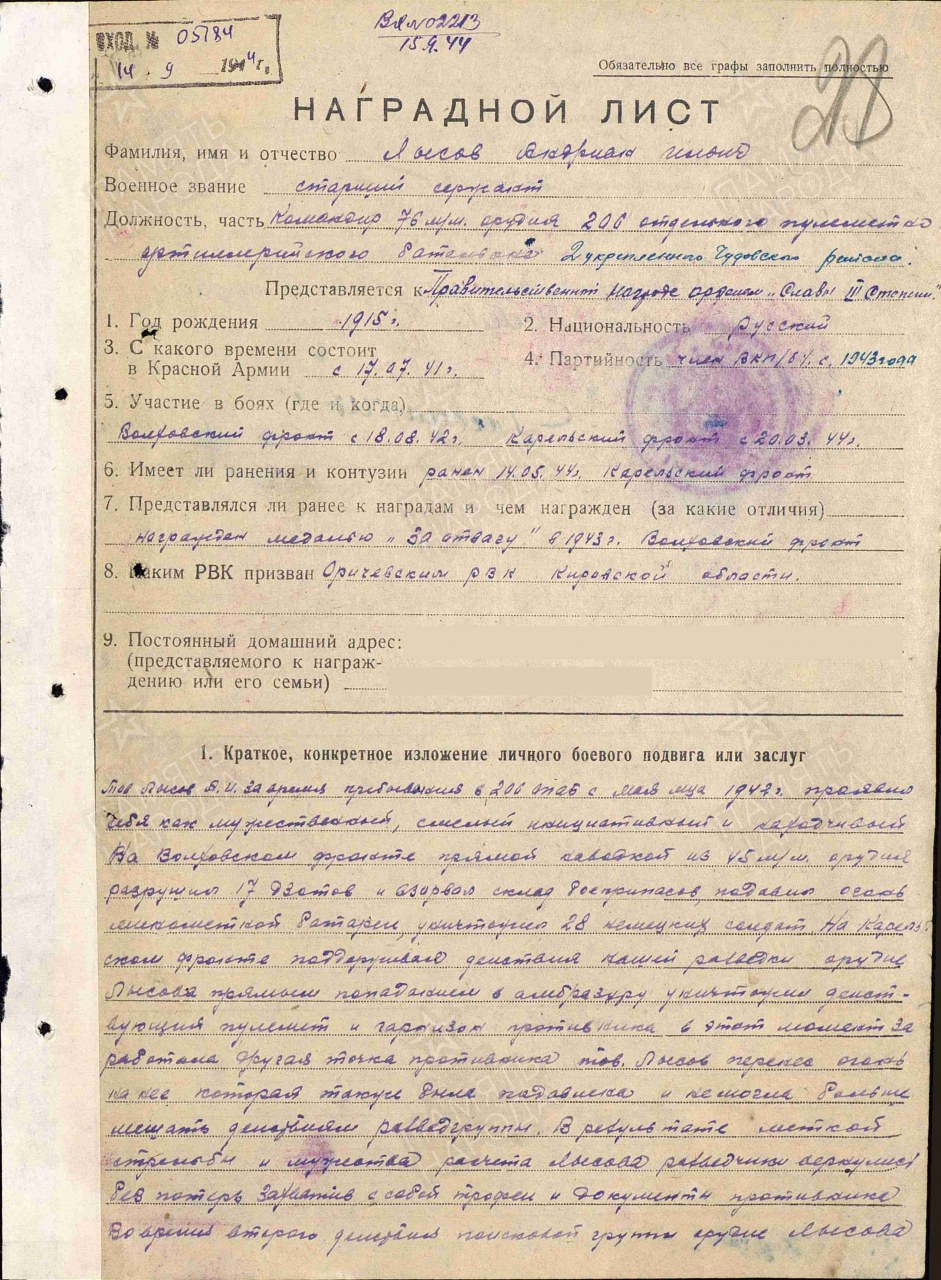 ВХОД. № 05184
14 . 9 1944 г.
Вх № 02213
15.9.44
28
Обязательно все графы заполнить полностью
НАГРАДНОЙ ЛИСТ
Фамилия, имя и отчество Лысов Андриан Ильич
Военное звание старший сержант
Должность, часть Командир 76 м/м. орудия 206 отдельного пулеметно
артиллерийского батальона 2 укрепленного Чудовского района.
Представляется к Правительственной награде орденом „Славы III Степени."
1. Год рождения 1915 г. 2. Национальность русский
3. С какого времени состоит
в Красной Армии с 17.07.41 г. 4. Партийность член ВКП/б/ с 1943 года
5. Участие в боях (где и когда)
Волховский фронт с 18.08.42 г. Карельский фронт с 20.03.44 г.
6. Имеет ли ранения и контузии ранен 14.05.44 г. Карельский фронт
7. Представлялся ли ранее к наградам и чем награжден (за какие отличия)
награжден медалью „За отвагу" в 1943 г. Волховский фронт
8. Каким РВК призван Оричевским РВК Кировской области.
9. Постоянный домашний адрес:
(представляемого к награж-
дению или его семьи)
1. Краткое, конкретное изложение личного боевого подвига или заслуг
Тов Лысов А.И. за время пребывания в 206 опаб с мая м-ца 1942 г. проявил
себя как мужественный, смелый инициативный и находчивый
На Волховском фронте прямой наводкой из 45 м/м. орудия
разрушил 17 дзотов и взорвал склад боеприпасов, подавил огонь
минометной батареи, уничтожил 28 немецких солдат. На Карель-
ском фронте поддерживая действия нашей разведки орудие
Лысова прямым попаданием в амбразуру уничтожил дейст-
вующий пулемет и гарнизон противника в этот момент за
работала другая точка противника тов. Лысов перенес огонь
на нее которая также была подавлена и не могла больше
мешать действиям разведгруппы. В результате меткой
стрельбы и мужества расчета Лысова разведчики вернулись
без потерь захватив с собой трофеи и документы противника
Во время второго действия поисковой группы орудие Лысова